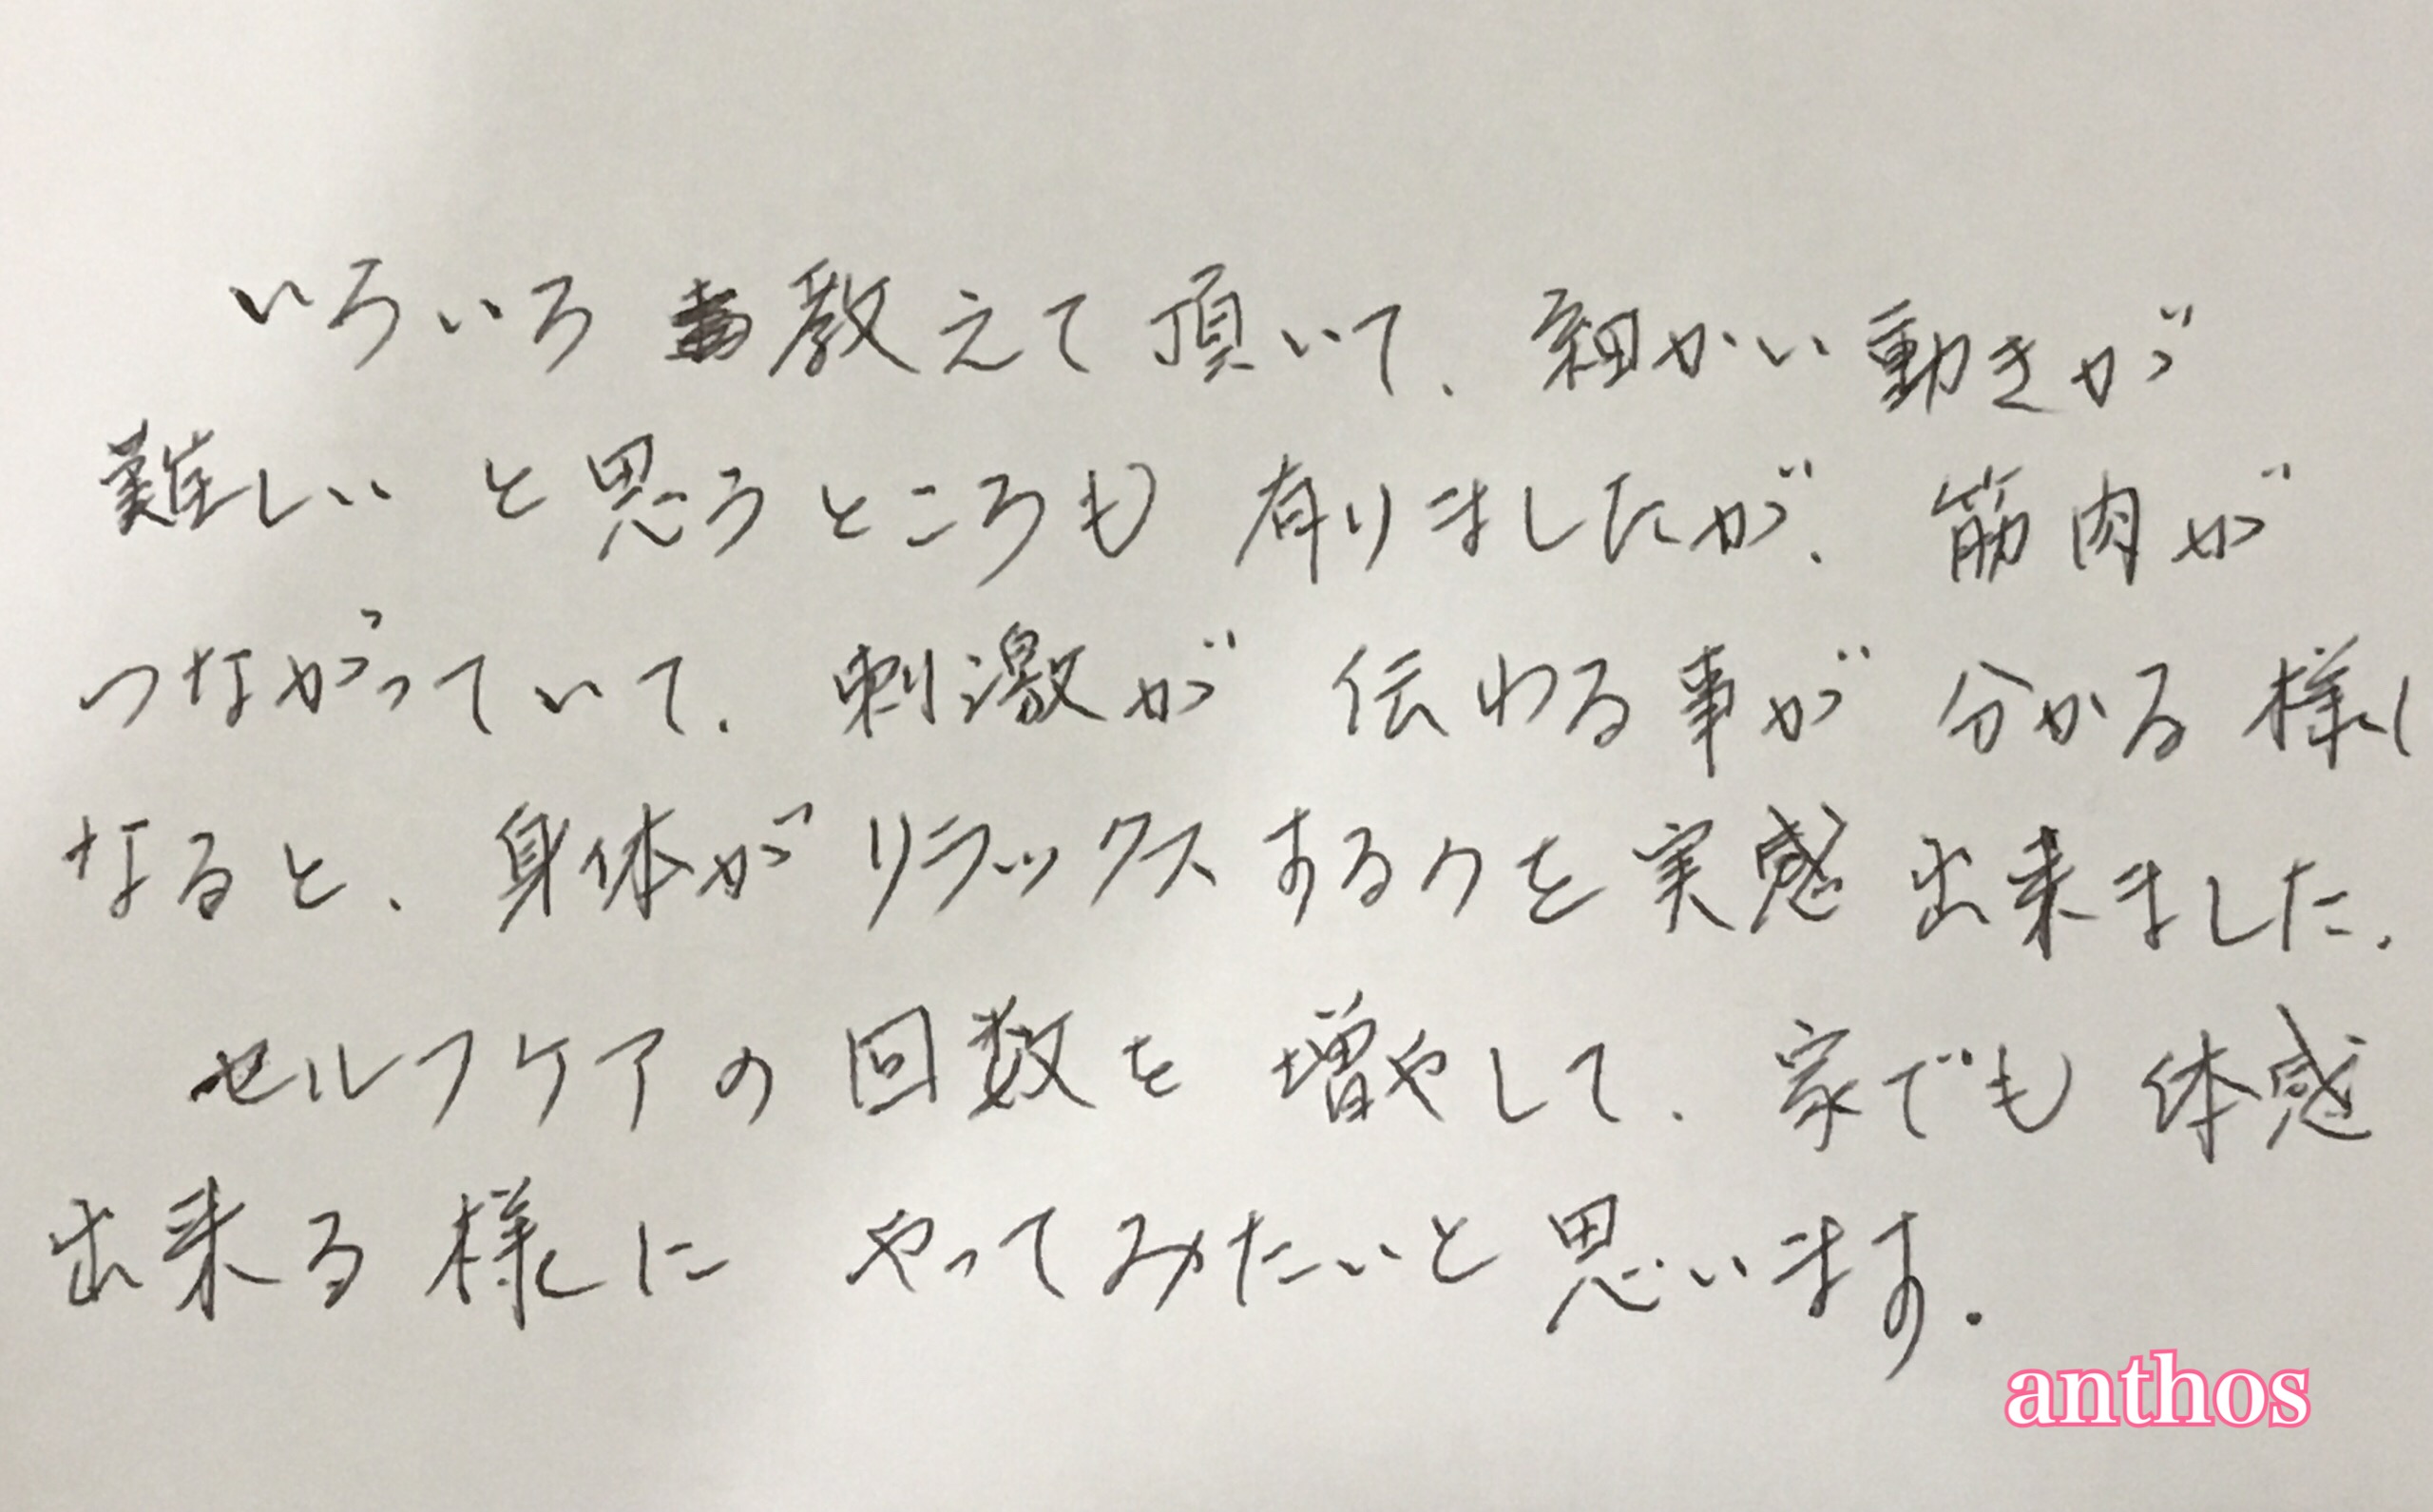 いろいろ教えて頂いて、細かい動きが
難しいと思うところも有りましたが、筋肉が
つながっていて、刺激が伝わる事が分かる様に
なると、身体がリラックスするのを実感出来ました。
セルフケアの回数を増やして、家でも体感
出来る様にやってみたいと思います。
anthos